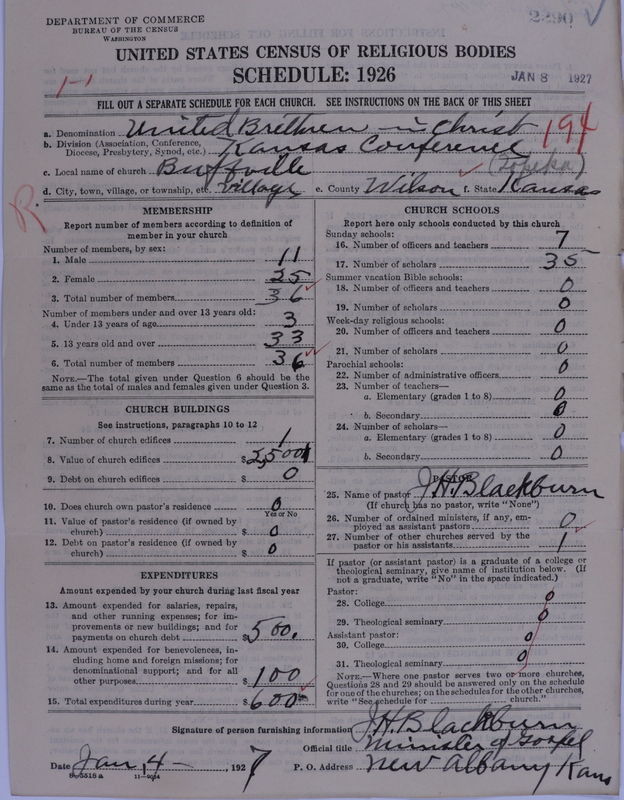 DEPARTMENT OF COMMERCE
BUREAU OF THE CENSUS
WASHINGTON
2290
UNITED STATES CENSUS OF RELIGIOUS BODIES
SCHEDULE: 1926
JAN 8 1927
1-1
FILL OUT A SEPARATE SCHEDULE FOR EACH CHURCH. SEE INSTRUCTIONS ON THE BACK OF THIS SHEET
a. Denomination United Brethren in Christ 194
b. Division (Association, Conference, Diocese, Presbytery, Synod, etc.) Kansas Conference
(Topeka)
c. Local name of church Buffville
d. City, town, village, or township, etc. Village e. County Wilson f. State Kansas
R
MEMBERSHIP
Report number of members according to definition of
member in your church
Number of members, by sex:
1. Male 11
2. Female 25
3. Total number of members 36
Number of members under and over 13 years old:
4. Under 13 years of age 3
5. 13 years old and over 33
6. Total number of members 36
NOTE.—The total given under Question 6 should be the
same as the total of males and females given under Question 3.
CHURCH BUILDINGS
See instructions, paragraphs 10 to 12
7. Number of church edifices 1
8. Value of church edifices $2,500
9. Debt on church edifices $0
10. Does church own pastor's residence 0
Yes or No
11. Value of pastor's residence (if owned by
church) $ 0
12. Debt on pastor's residence (if owned by
church) $ 0
EXPENDITURES
Amount expended by your church during last fiscal year
13. Amount expended for salaries, repairs,
and other running expenses; for im-
provements or new buildings; and for
payments on church debt $500.
14. Amount expended for benevolences, in-
cluding home and foreign missions; for
denominational support; and for all
other purposes $100
15. Total expenditures during year $600
CHURCH SCHOOLS
Report here only schools conducted by this church
Sunday schools:
16. Number of officers and teachers 7
17. Number of scholars 35
Summer vacation Bible schools:
18. Number of officers and teachers 0
19. Number of scholars 0
Week-day religious schools:
20. Number of officers and teachers 0
21. Number of scholars 0
Parochial schools:
22. Number of administrative officers 0
23. Number of teachers—
a. Elementary (grades 1 to 8) 0
b. Secondary 0
24. Number of scholars—
a. Elementary (grades 1 to 8) 0
b. Secondary 0
PASTOR
25. Name of pastor J H Blackburn
(If church has no pastor, write "None")
26. Number of ordained ministers, if any, em-
ployed as assistant pastors 0
27. Number of other churches served by the
pastor or his assistants 1
If pastor (or assistant pastor) is a graduate of a college or
theological seminary, give name of institution below. (If
not a graduate, write "No" in the space indicated.)
Pastor:
28. College 0
29. Theological seminary 0
Assistant pastor:
30. College 0
31. Theological seminary 0
NOTE.—Where one pastor serves two or more churches,
Questions 28 and 29 should be answered only on the schedule
for one of the churches; on the schedules for the other churches,
write "See schedule for church."
Signature of person furnishing information J H Blackburn
Official title Minister of Gospel
Date Jan, 4 —, 1927 P. O. Address New Albany Kans